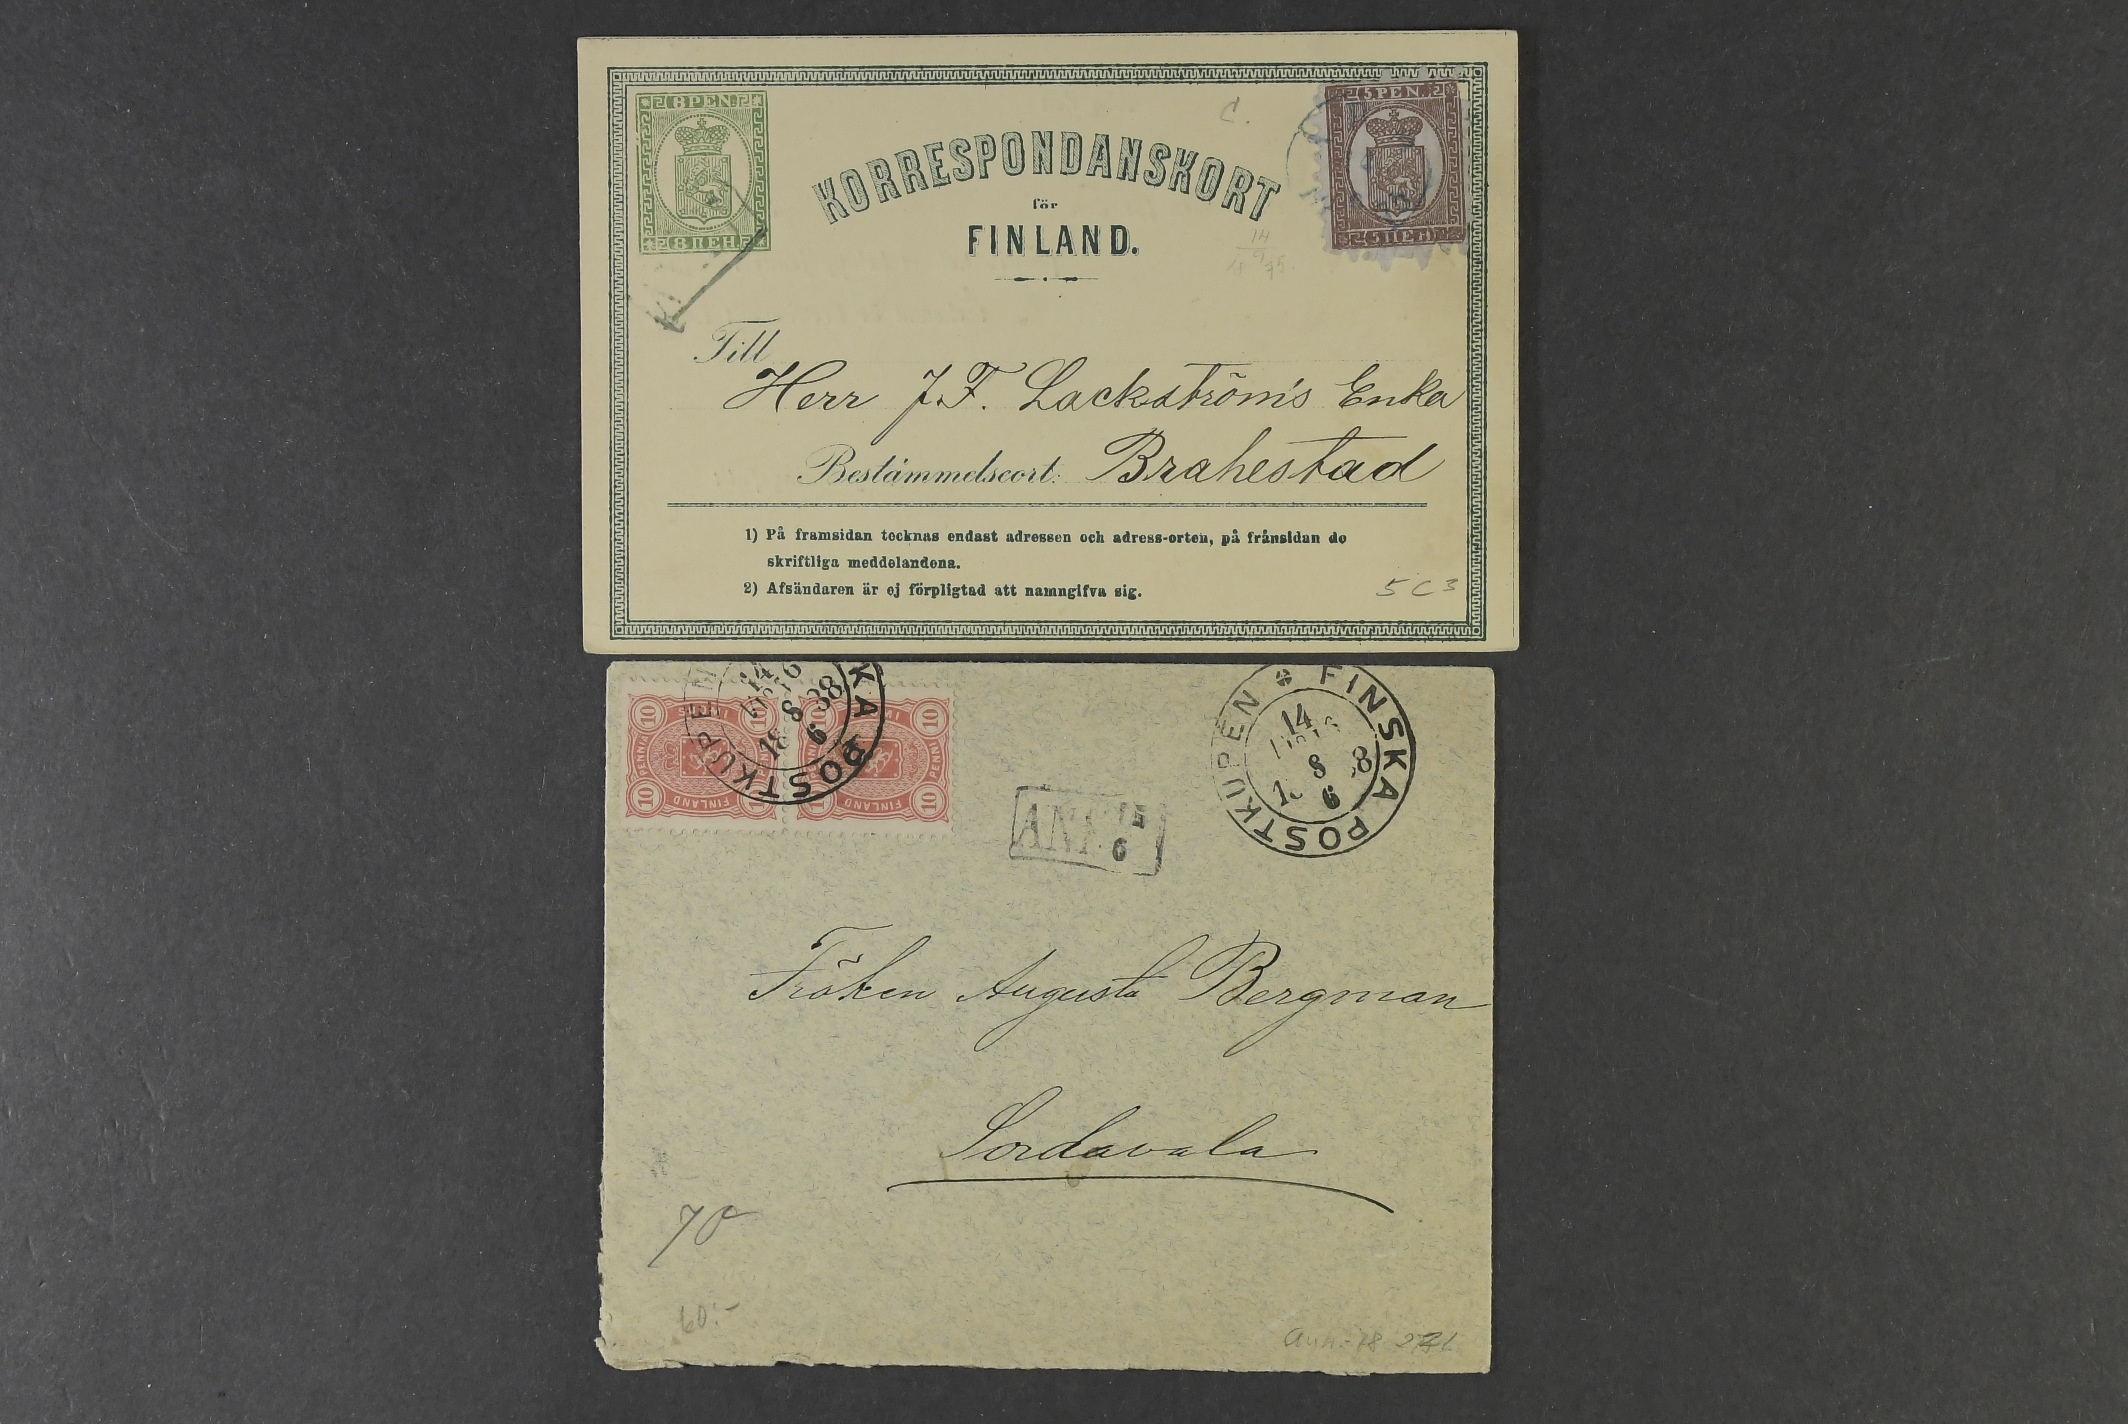 8 PEN.
8 ПЕН.
C.
5 PEN.
5 ПЕН.
KORRESPONDANSKORT
för
FINLAND.
14
9 75.
Till
Herr J. F. Lackström's Enka
Bestämmelseort: Brahestad
1) På framsidan tecknas endast adressen och adress-orten, på frånsidan de
skriftliga meddelandena.
2) Afsändaren är ej förpligtad att namngifva sig.
5 C 3
10 10 10
PENNI PENNI
FINLAND FINLAND
10 10 10
KA POSTKUPE
14
8
18 88
6
FINSKA POSTKUPEN
14
8
8
6
ANK 15
6
Fröken Augusta Bergman
Sordavala
70
60:-